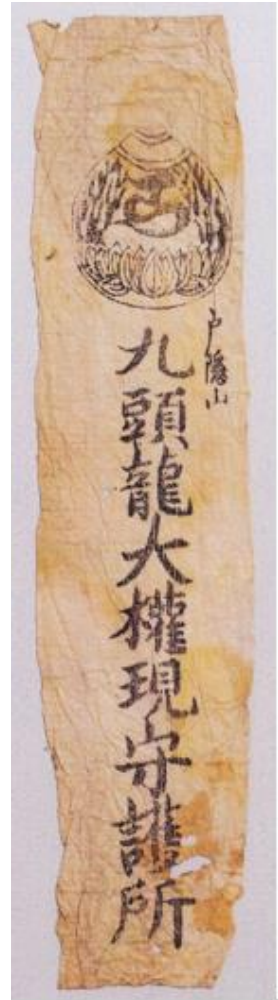 戸隱山
九頭龍大權現守護所